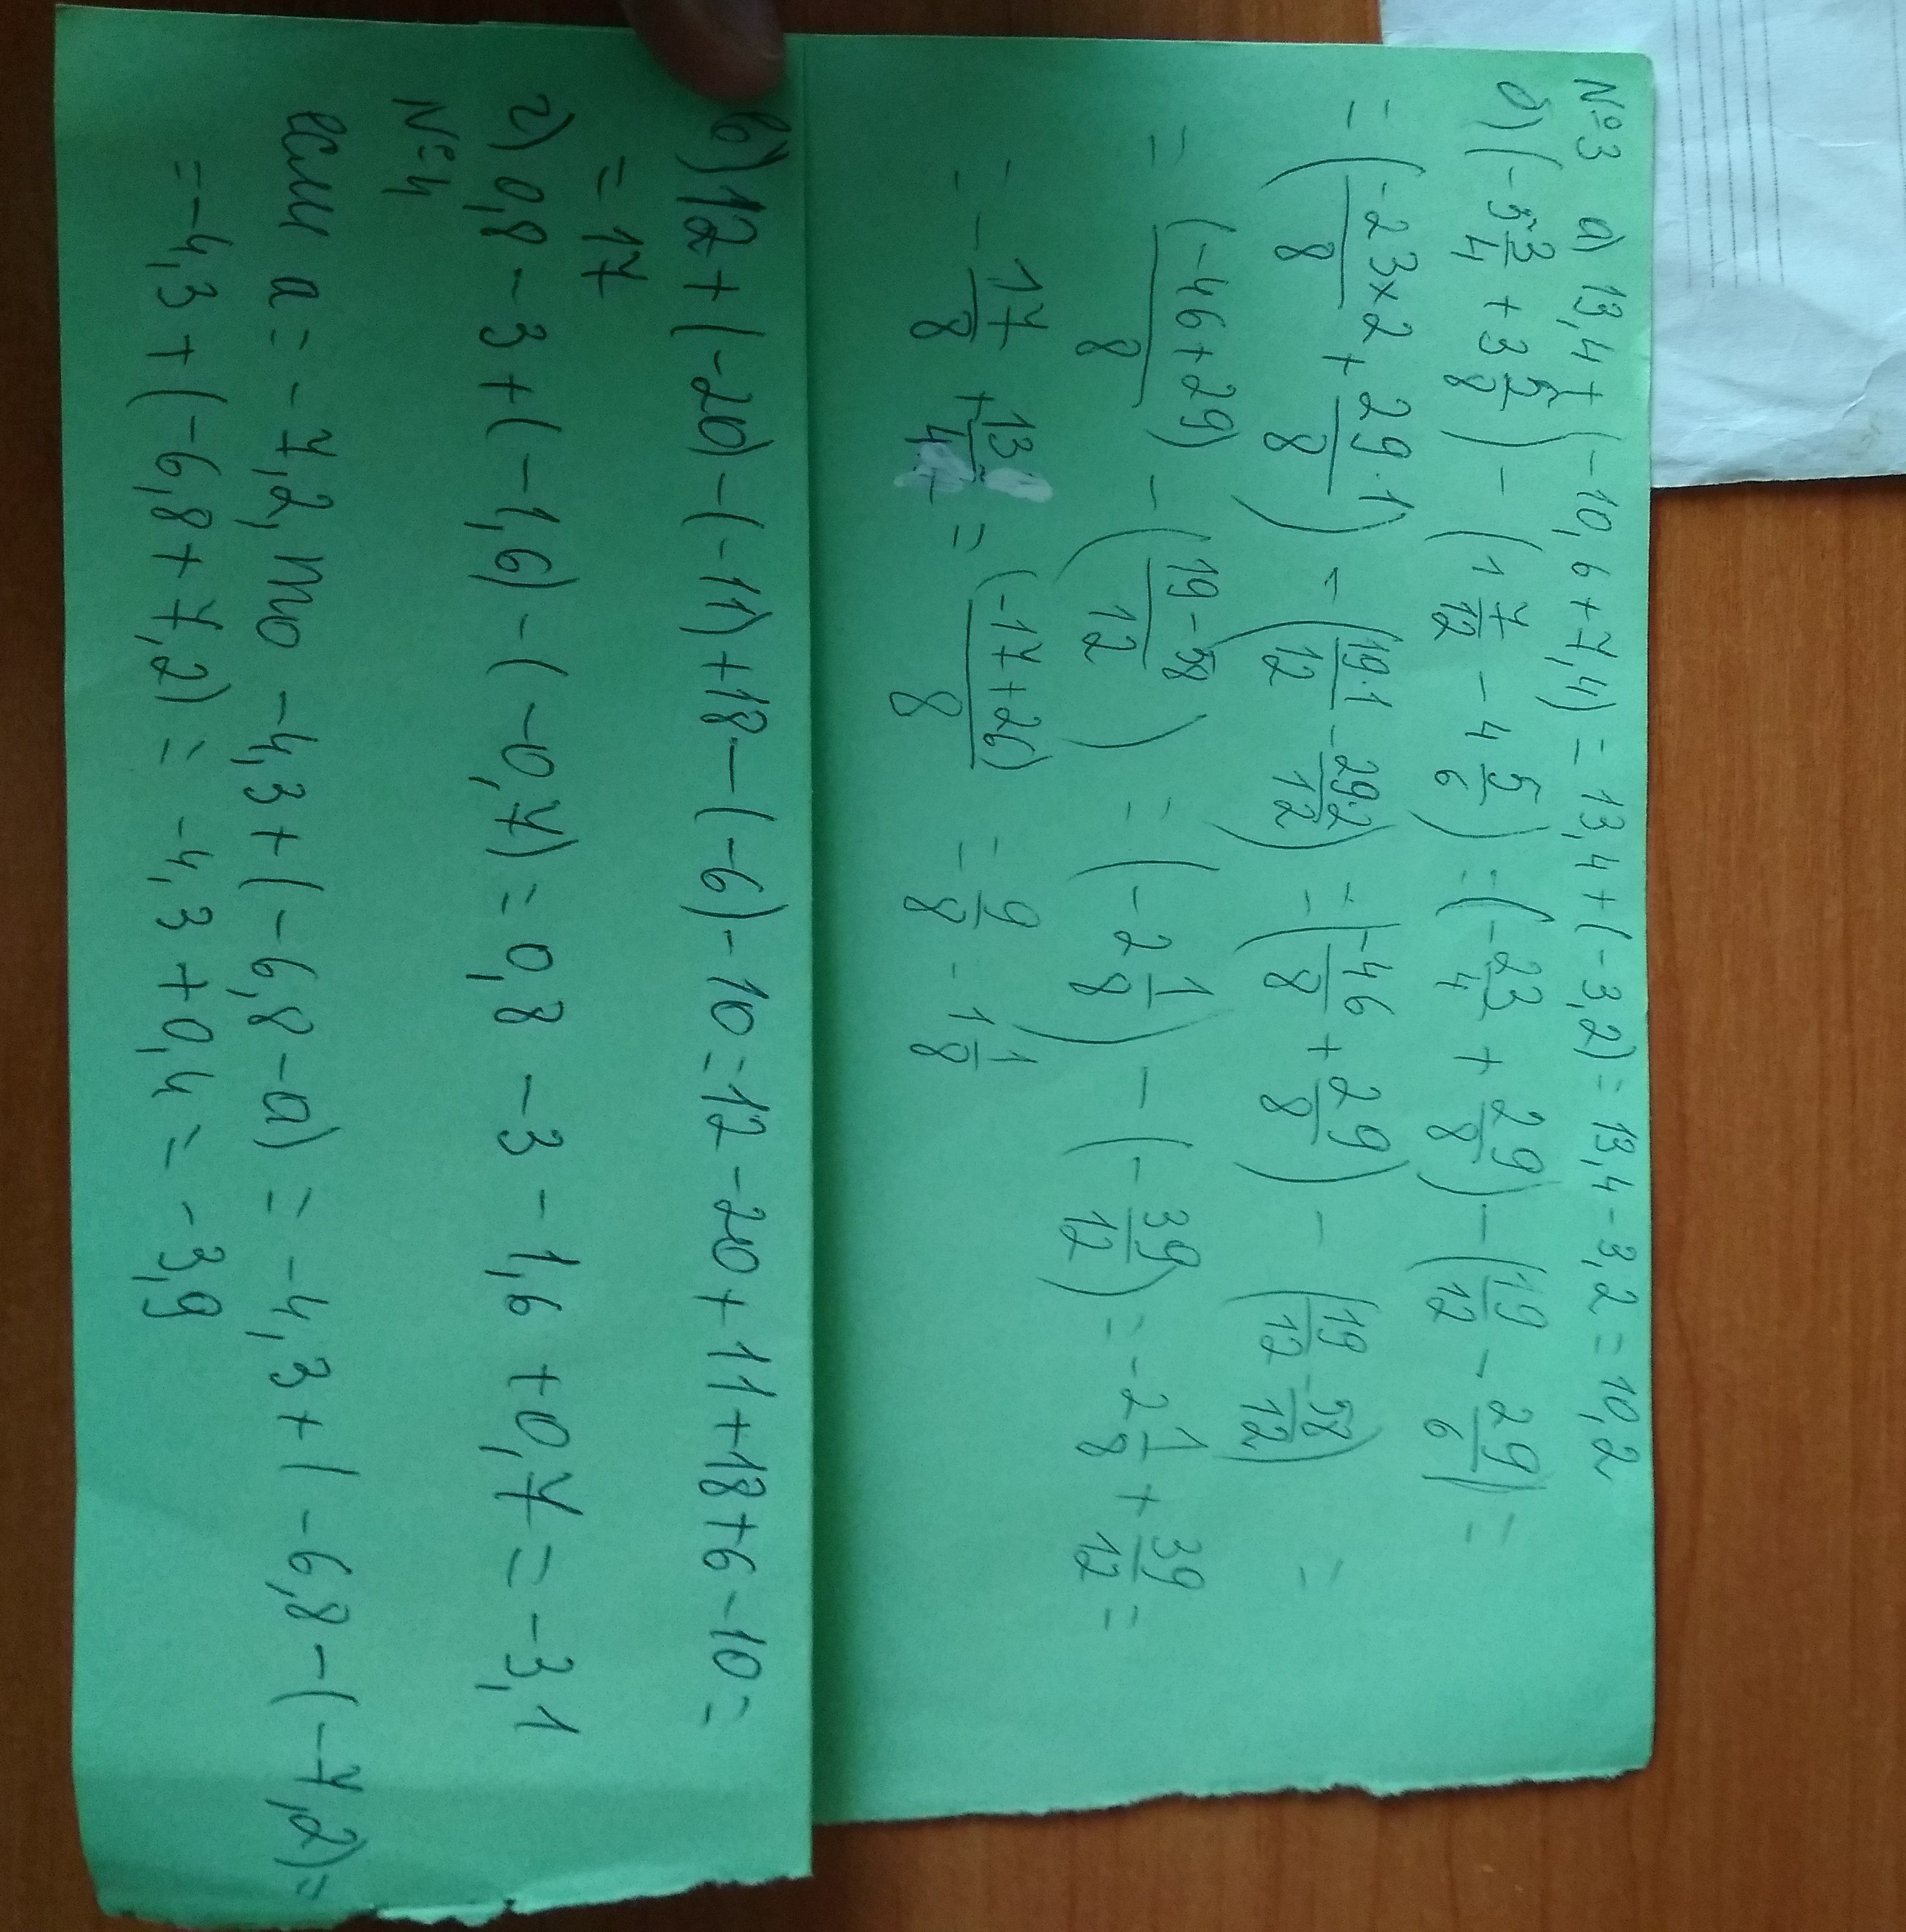 №3 а) 13,4 + (-10,6 + 7,4) = 13,4 + (-3,2) = 13,4 - 3,2 = 10,2
б) (-5 3/4 + 3 5/8) - (1 7/12 - 4 5/6) = (-23/4 + 29/8) - (19/12 - 29/6) =
= (-23×2/8 + 29·1/8) - (19·1/12 - 29·2/12) = (-46/8 + 29/8) - (19/12 - 58/12) =
= (-46+29)/8 - (19-58/12) = (-2 1/8) - (-39/12) = -2 1/8 + 39/12 =
= -17/8 + 13/4 = (-17+26)/8 = -9/8 - 1 1/8
в) 12 + (-20) - (-11) + 18 - (-6) - 10 = 12 - 20 + 11 + 18 + 6 - 10 =
= 17
г) 0,8 - 3 + (-1,6) - (-0,7) = 0,8 - 3 - 1,6 + 0,7 = -3,1
№4
если a = -7,2, то -4,3 + (-6,8 - a) = -4,3 + (-6,8 - (-7,2) =
= -4,3 + (-6,8 + 7,2) = -4,3 + 0,4 = -3,9